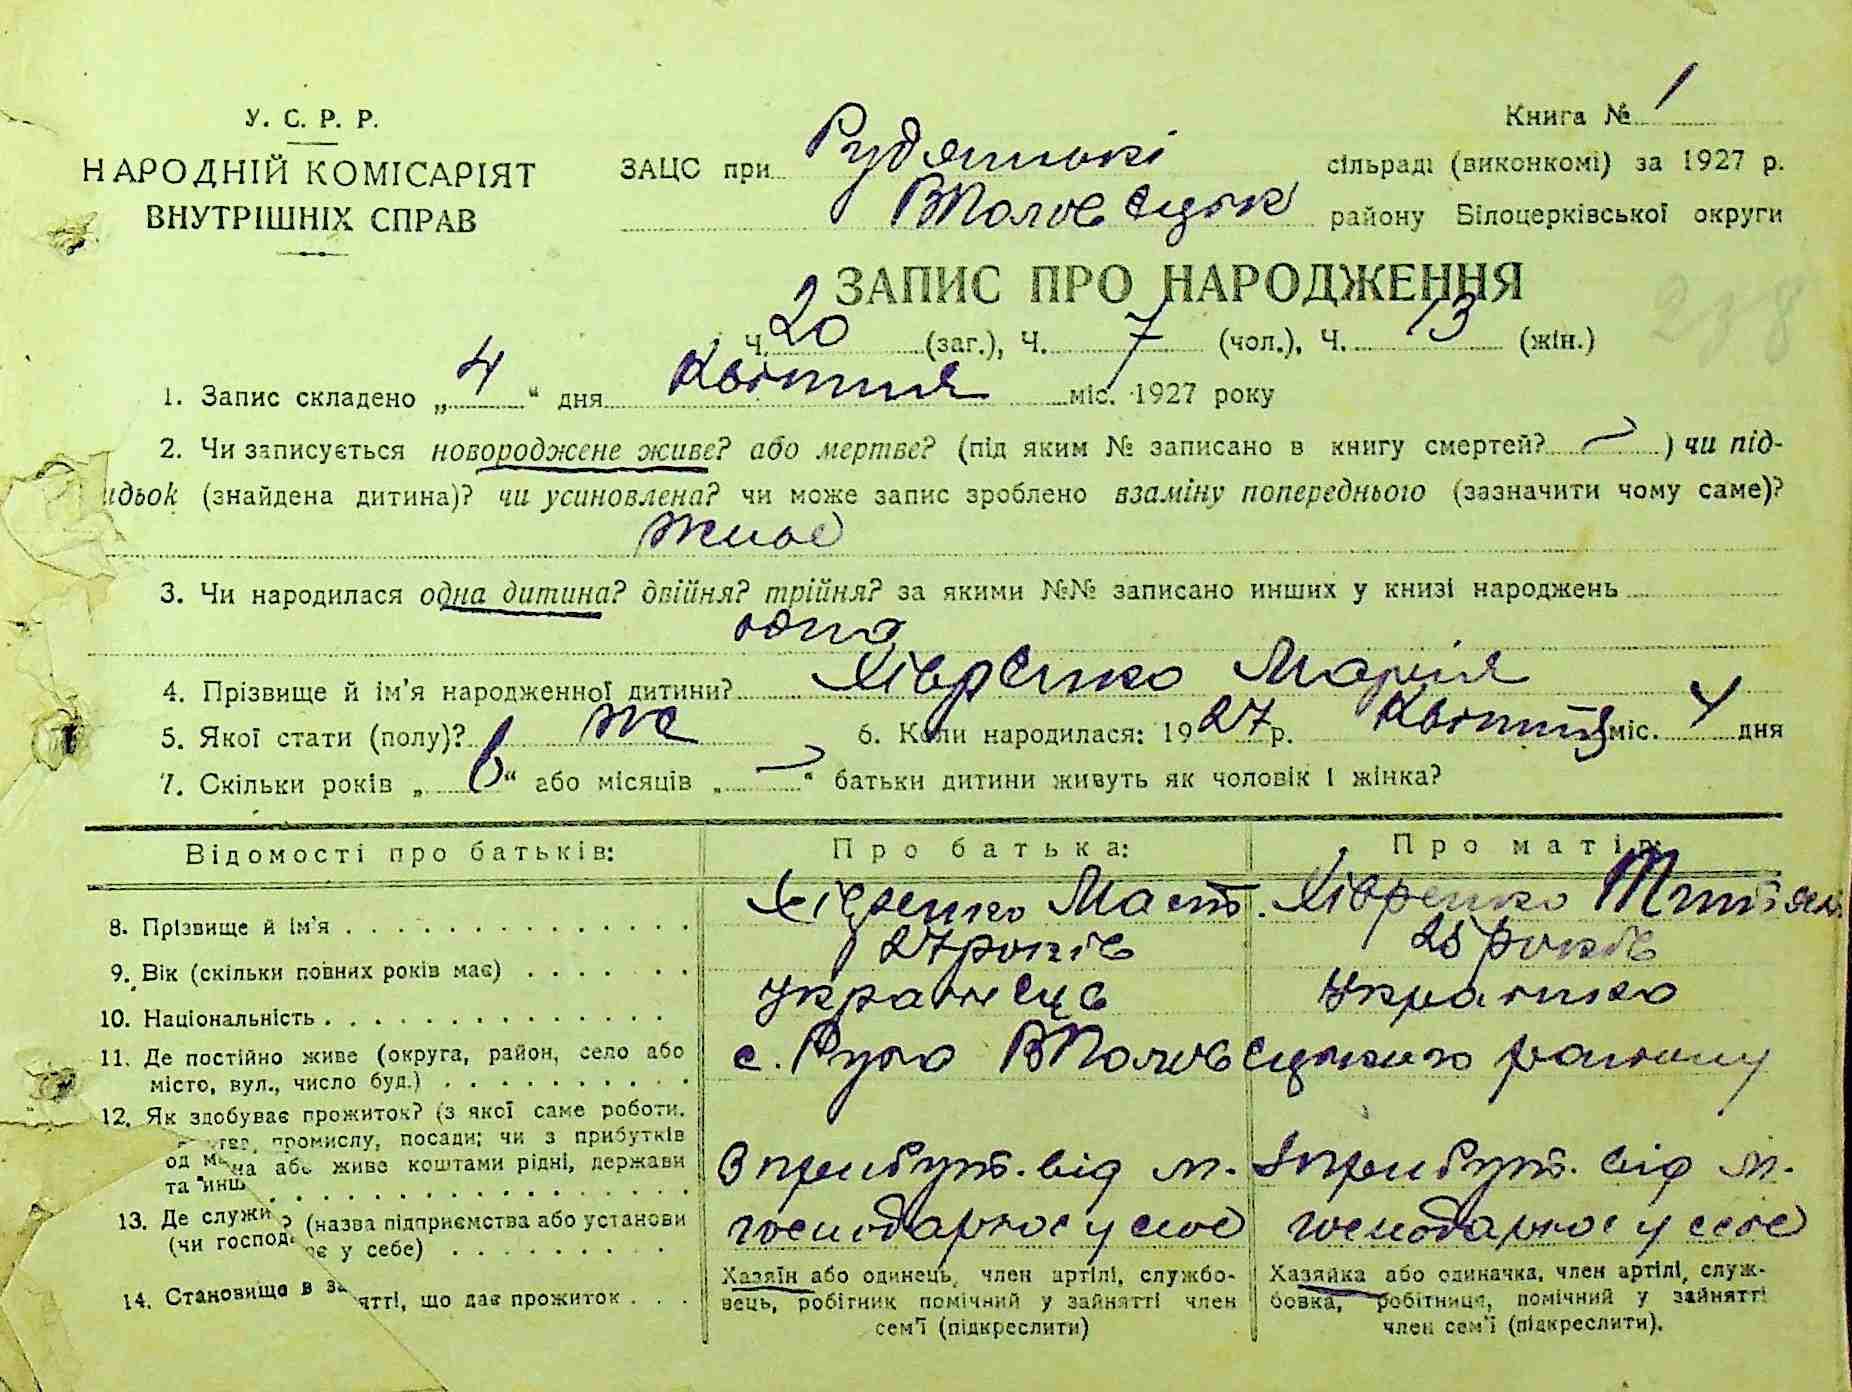 У. С. Р. Р.
НАРОДНІЙ КОМІСАРІЯТ
ВНУТРІШНІХ СПРАВ
Книга № 1
ЗАЦС при Рудянські сільраді (виконкомі) за 1927 р.
ВПоловецьк району Білоцерківської округи
ЗАПИС ПРО НАРОДЖЕННЯ
238
Ч. 20 (заг.), Ч. 7 (чол.), Ч. 13 (жін.)
1. Запис складено „4“ дня Квітня міс. 1927 року
2. Чи записується новороджене живе? або мертве? (під яким № записано в книгу смертей? ) чи під-
идьок (знайдена дитина)? чи усиновлена? чи може запис зроблено взаміну попереднього (зазначити чому саме)?
живе
3. Чи народилася одна дитина? двійня? трійня? за якими №№ записано инших у книзі народжень
одна
4. Прізвище й ім'я народженної дитини? Хівренко Марія
5. Якої стати (полу)? же 6. Коли народилася: 1927 р. Квітня міс. 4 дня
7. Скільки років „6“ або місяців „ “ батьки дитини живуть як чоловік і жінка?
Відомості про батьків: Про батька: Про матір:
8. Прізвище й ім'я Хівренко Хівренко
9. Вік (скільки повних років має) 27 років 25 років
10. Національність українець українка
11. Де постійно живе (округа, район, село або
місто, вул., число буд.) с. Руда ВПоловецького району
12. Як здобуває прожиток? (з якої саме роботи,
промислу, посади; чи з прибутків
од на або живе коштами рідні, держави
та инш
З прибут. від м. З прибут. від м.
13. Де служи ? (назва підприємства або установи
(чи господ є у себе)
господарює у себе господарює у себе
14. Становище в за ятті, що дає прожиток
Хазяїн або одинець, член артілі, службо-
вець, робітник помічний у зайнятті член
сем'ї (підкреслити)
Хазяйка або одиначка, член артілі, служ-
бовка, робітниця, помічний у зайнятті
член сем'ї (підкреслити).